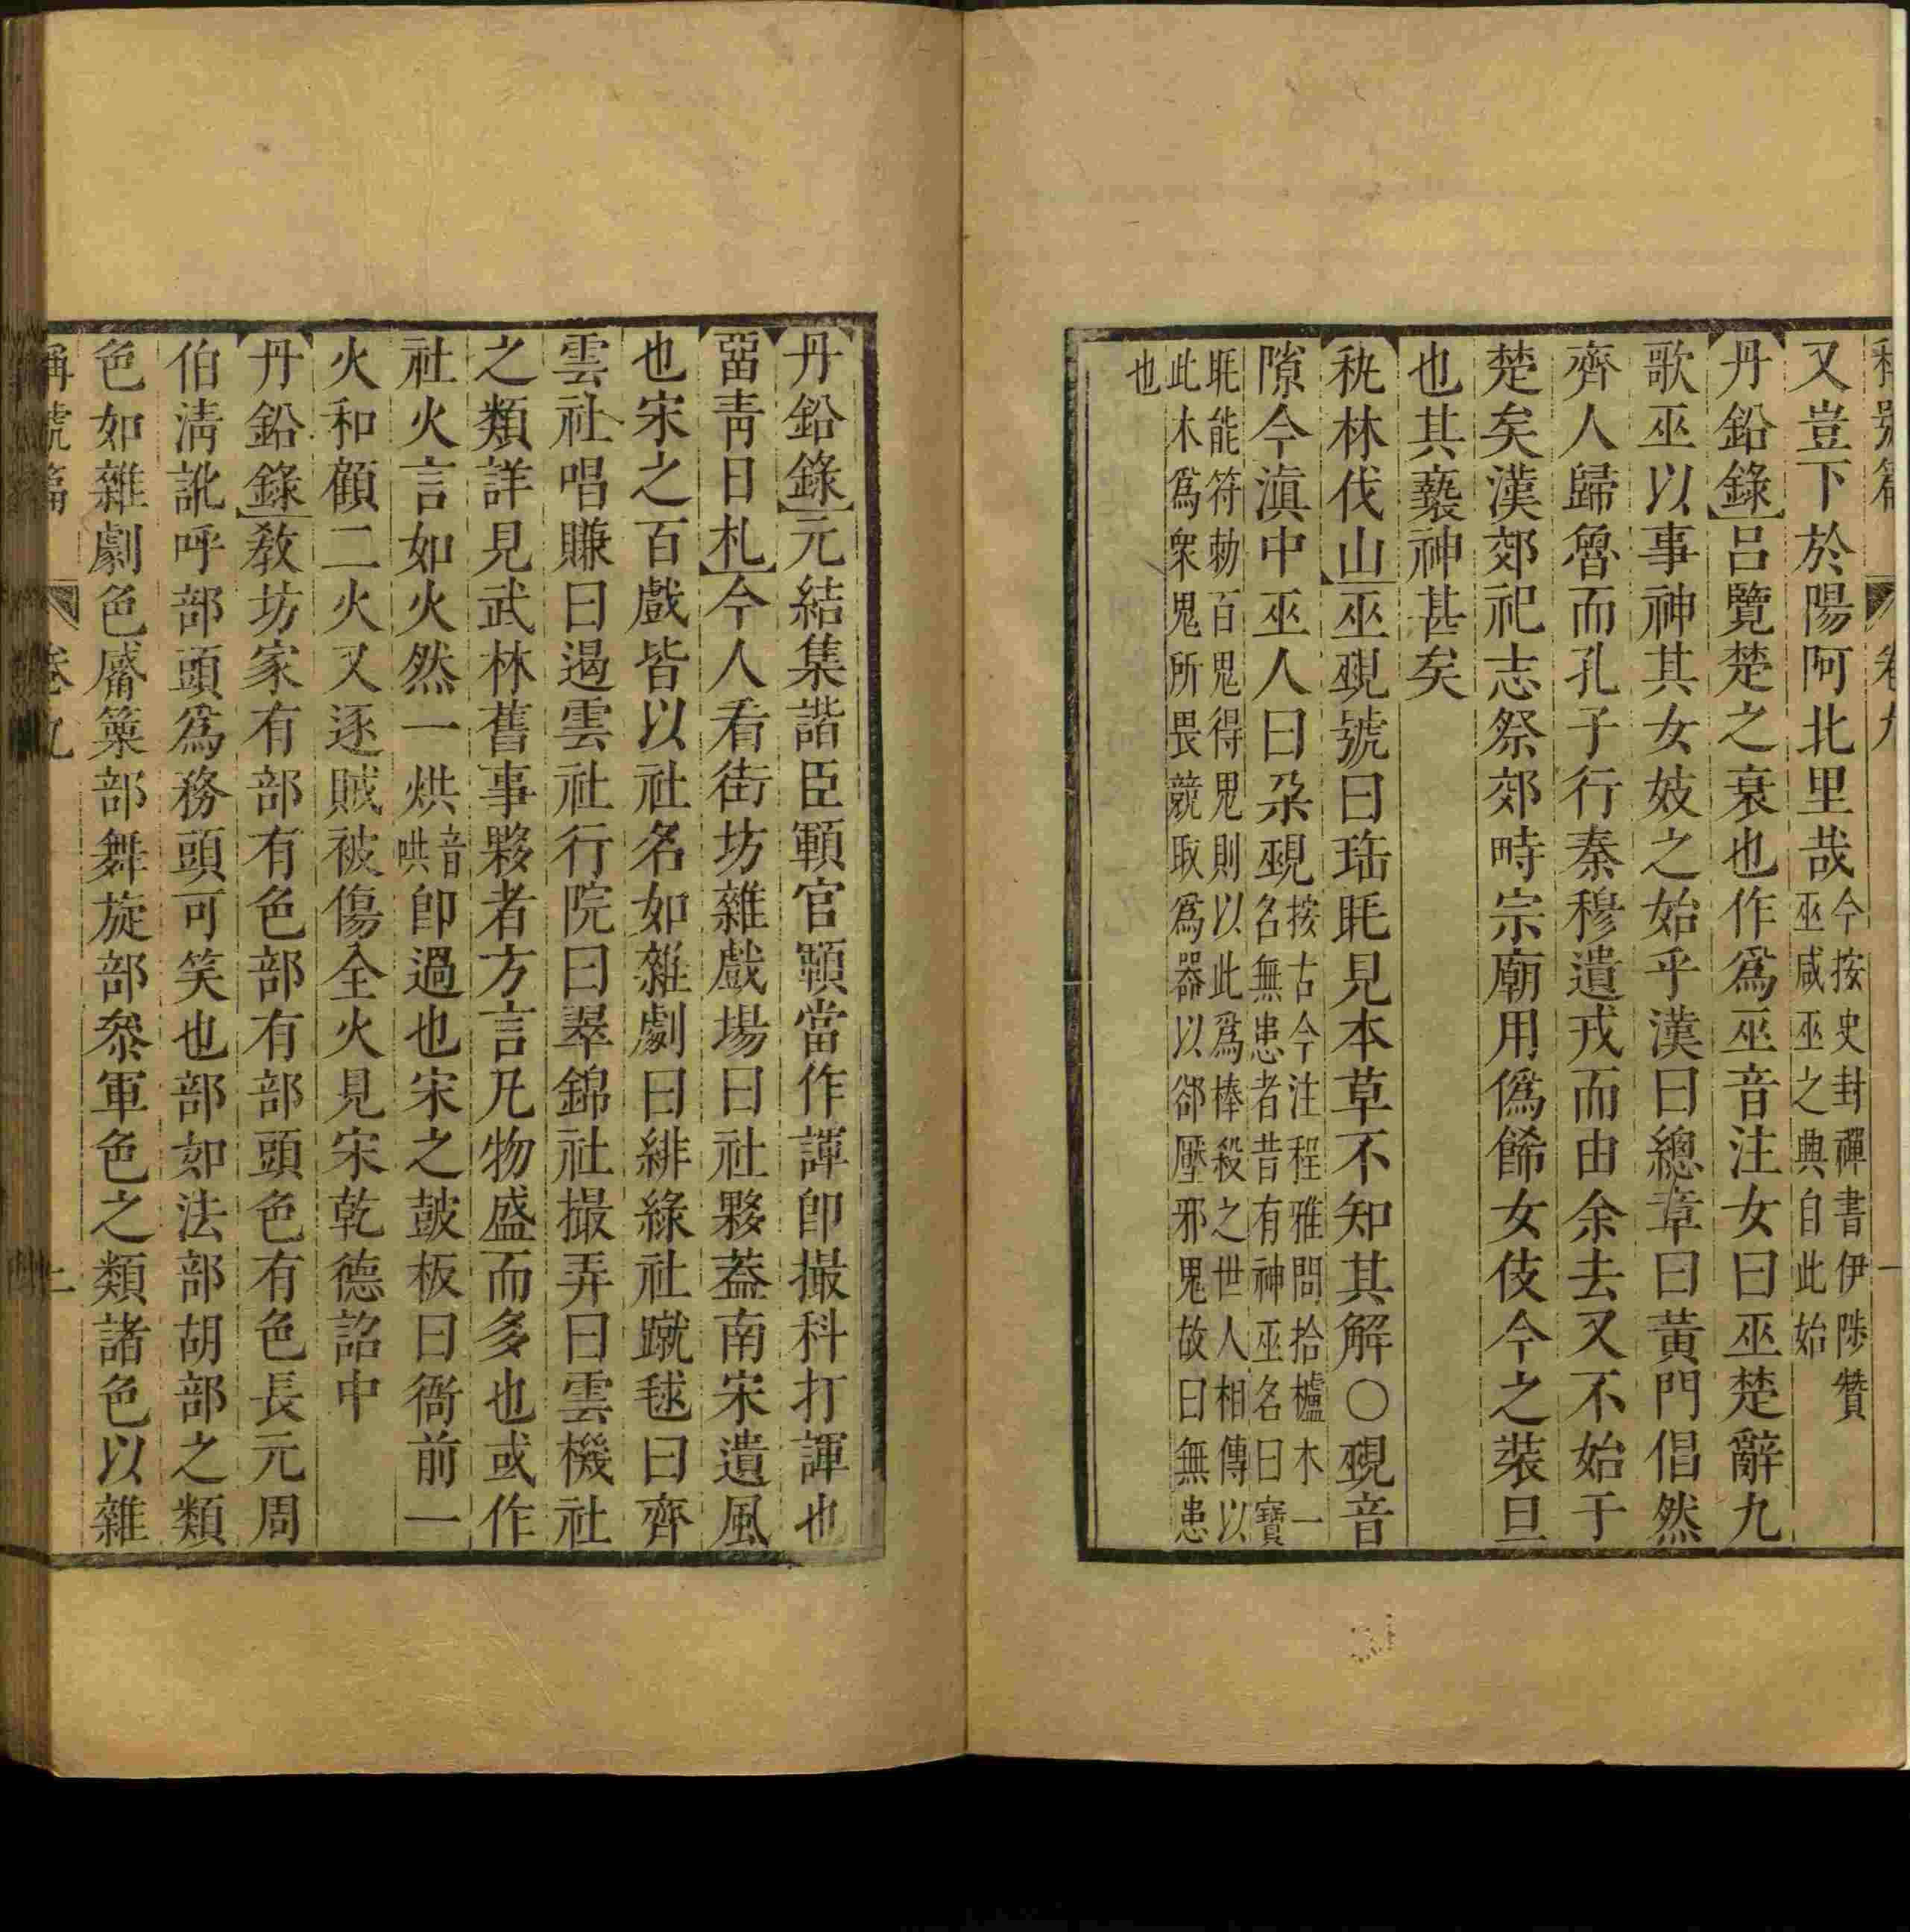 稱號篇 卷九 一
又豈下於陽阿北里哉今按史封禪書伊陟贊巫咸巫之興自此始
丹鉛錄呂覽楚之衰也作爲巫音注女曰巫楚辭九
歌巫以事神其女妓之始乎漢曰總章曰黃門倡然
齊人歸魯而孔子行秦穆遺戎而由余去又不始于
楚矣漢郊祀志祭郊畤宗廟用僞飾女伎今之裝旦
也其褻神甚矣
秇林伐山巫覡號曰珤眊見本草不知其解○覡音
隙今滇中巫人曰朶覡按古今注程雅問拾櫨木一名無患者昔有神巫名曰寶
眊能符勅百鬼得鬼則以此爲棒殺之世人相傳以此木爲衆鬼所畏競取爲器以郤壓邪鬼故曰無患
也
丹鉛錄元結集諧臣顐官顐當作諢卽撮科打諢也
畱青日札今人看街坊雜戲場曰社夥葢南宋遺風
也宋之百戲皆以社名如雜劇曰緋綠社蹴毬曰齊
雲社唱賺曰遏雲社行院曰翠錦社撮弄曰雲機社
之類詳見武林舊事夥者方言凡物盛而多也或作
社火言如火然一烘音哄卽過也宋之鼓板曰衙前一
火和顧二火又逐賊被傷全火見宋乾德詔中
丹鉛錄教坊家有部有色部有部頭色有色長元周
伯淸訛呼部頭爲務頭可笑也部如法部胡部之類
色如雜劇色觱篥部舞旋部叅軍色之類諸色以雜
稱號篇 卷九 上